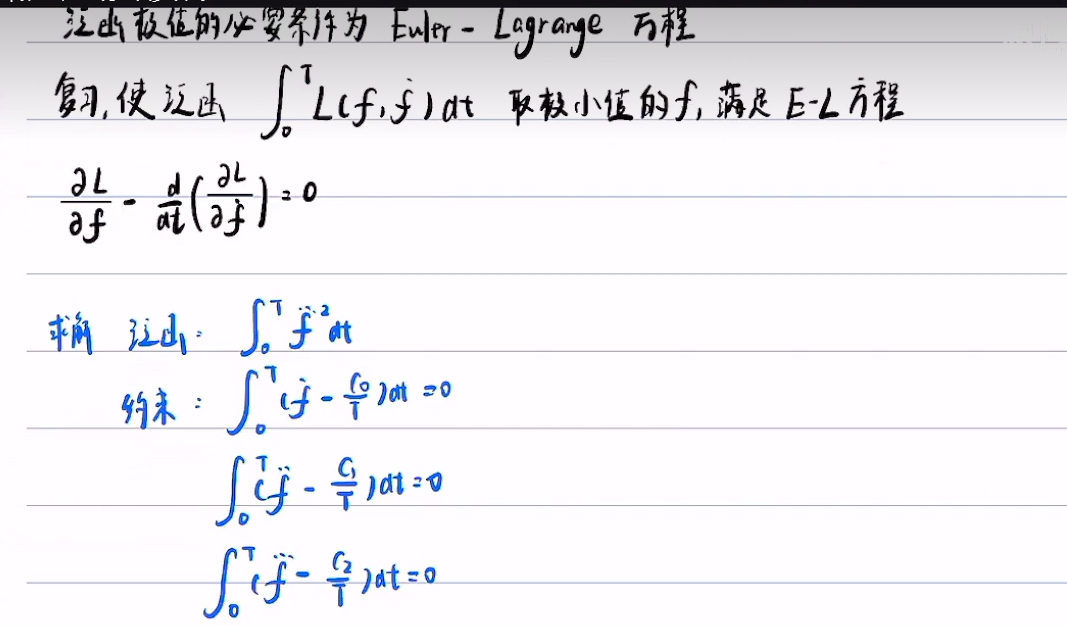 泛函极值的必要条件为 Euler - Lagrange 方程
复习, 使泛函 ∫₀ᵀ L(f, ḟ) dt 取极小值的 f, 满足 E-L 方程
∂L/∂f - d/dt(∂L/∂ḟ) = 0
求解 泛函: ∫₀ᵀ f⃛² dt
约束: ∫₀ᵀ (ḟ - C₀/T) dt = 0
∫₀ᵀ (f̈ - C₁/T) dt = 0
∫₀ᵀ (f⃛ - C₂/T) dt = 0